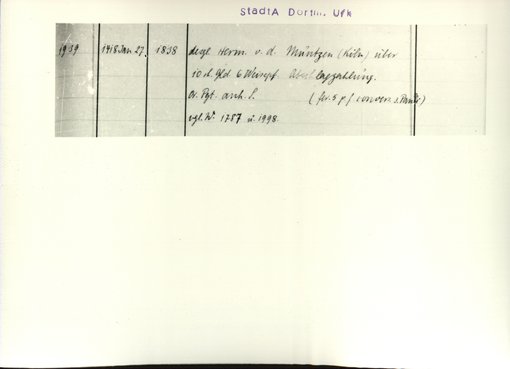 StadtA Dortm. Urk
1939 1418 Jan. 27. 1838 desgl. Herm. v. d. Müntzen (Köln) über
10 rh. Gld 6 Weispf. Abschlagzahlung.
Or. Pgt. anh. S. (fer. 5 p f convers. s. Pauli)
vgl. Nr. 1787 u. 1998.